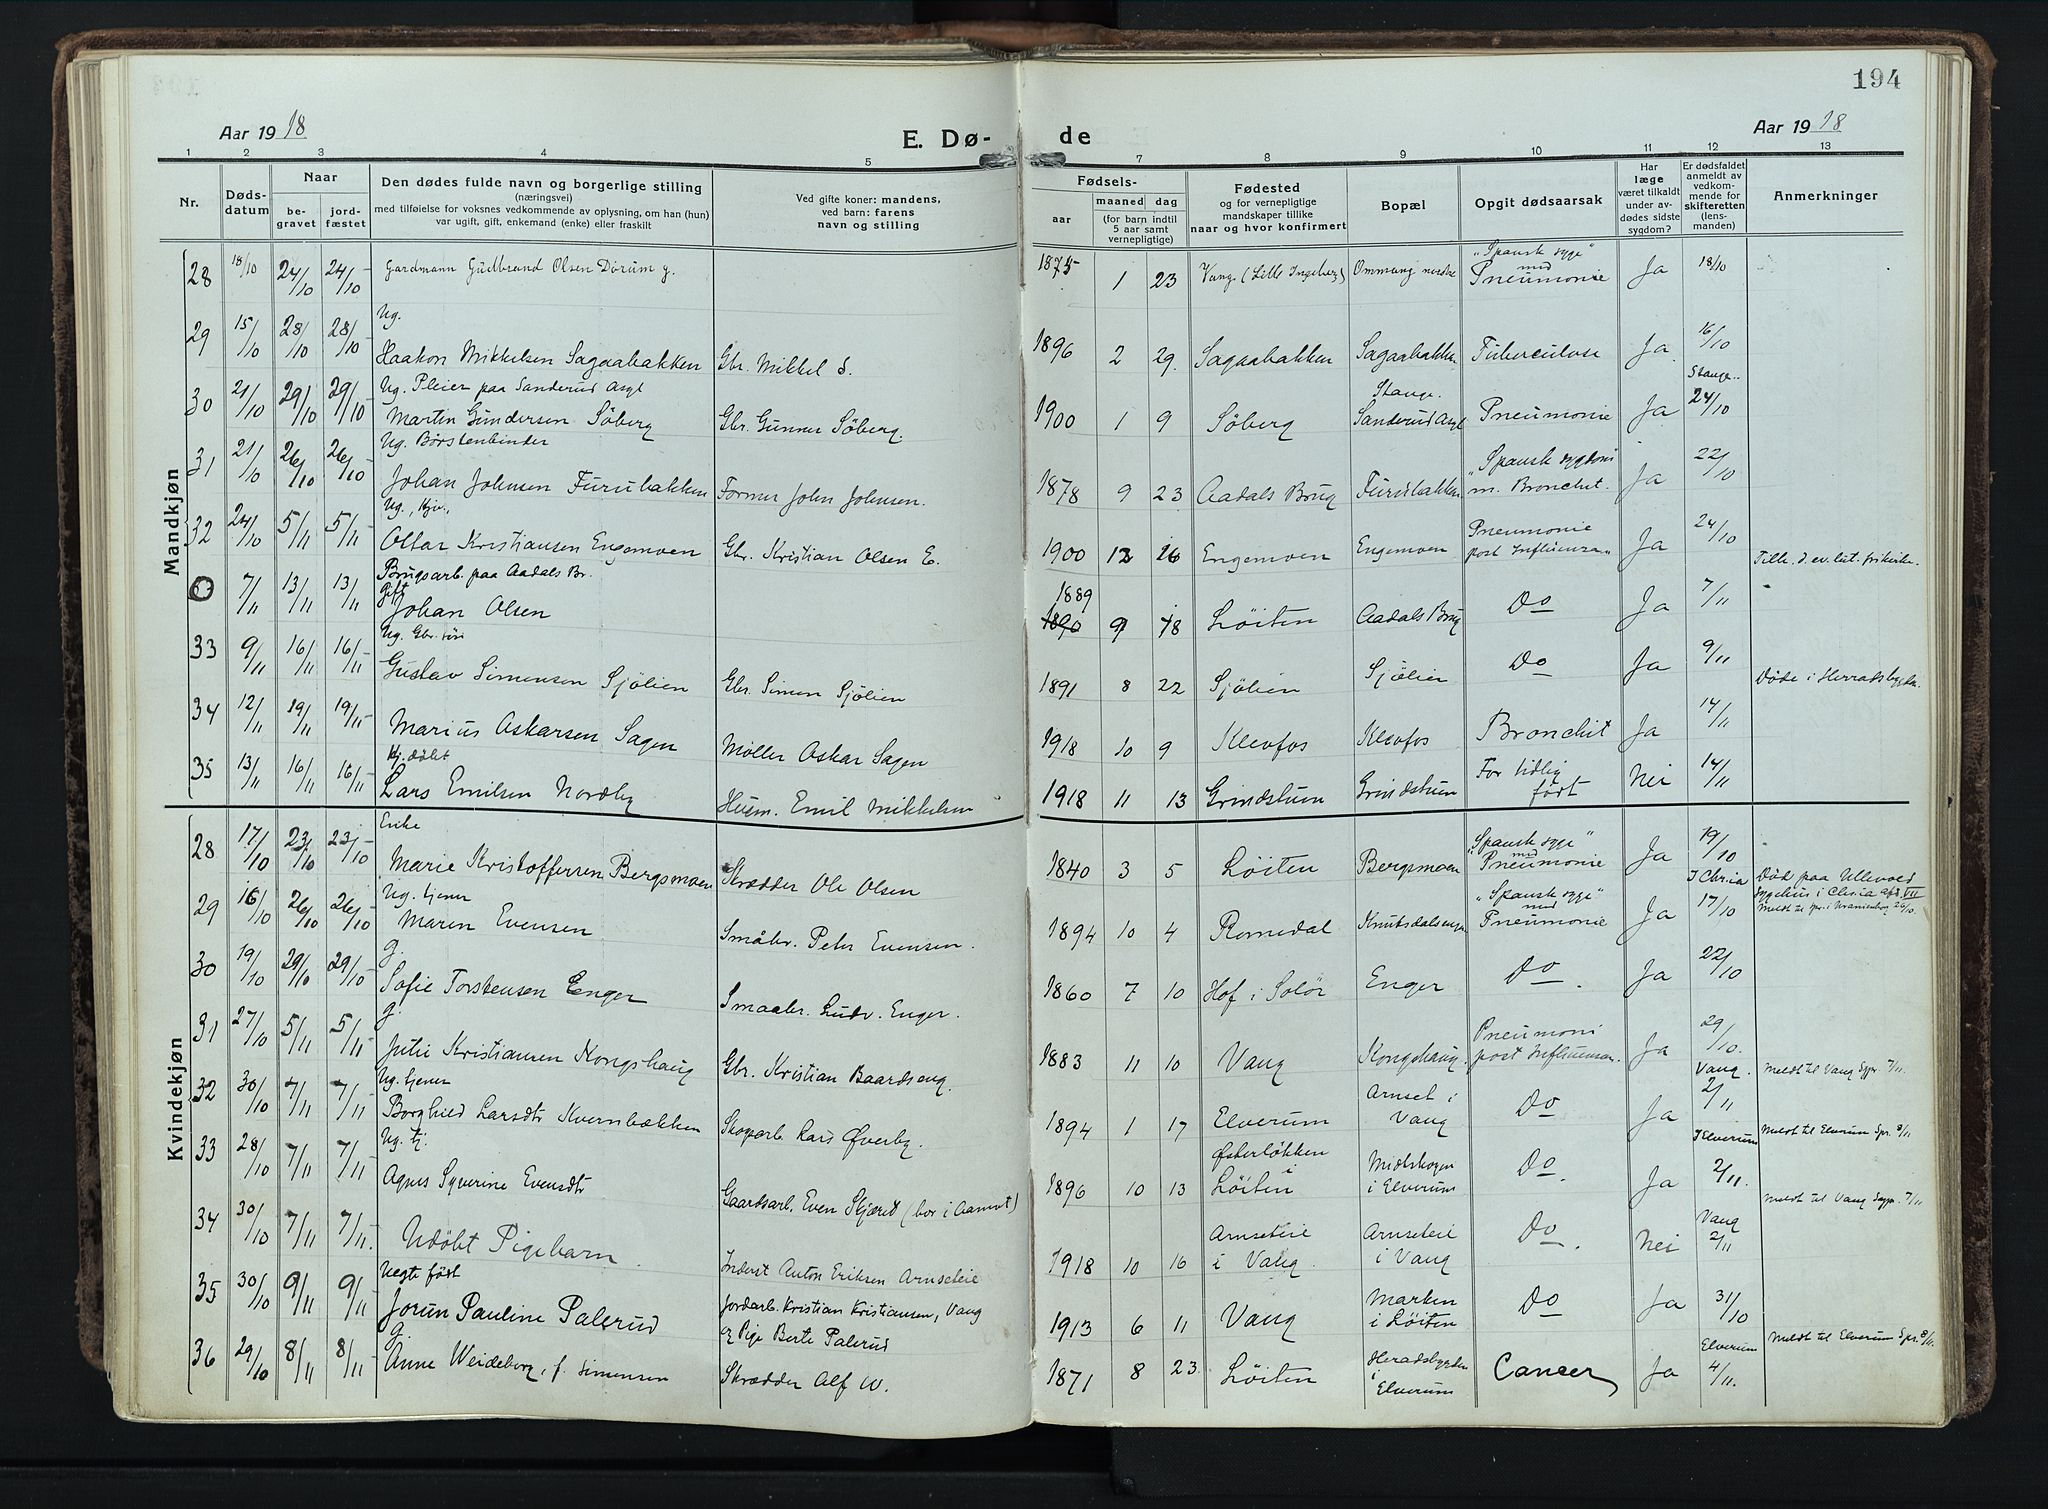 194
Aar 1918
E. Dø-
de
Aar 1918
1 2 3 4 5 7 8 9 10 11 12 13
Nr.
Døds-
datum
Naar
be-
gravet
jord-
fæstet
Den dødes fulde navn og borgerlige stilling
(næringsvei)
med tilføielse for voksnes vedkommende av oplysning, om han (hun)
var ugift, gift, enkemand (enke) eller fraskilt
Ved gifte koner: mandens,
ved barn: farens
navn og stilling
Fødsels-
aar
maaned dag
(for barn indtil
5 aar samt
vernepligtige)
Fødested
og for vernepligtige
mandskaper tillike
naar og hvor konfirmert
Bopæl
Opgit dødsaarsak
Har
læge
været tilkaldt
under av-
dødes sidste
sygdom?
Er dødsfaldet
anmeldt av
vedkom-
mende for
skifteretten
(lens-
manden)
Anmerkninger
Mandkjøn
28 18/10 24/10 24/10 Gardmann Gudbrand Olsen Dørum g. 1875 1 23 Vang (Lille Ingeberg) Ommang nordre "Spansk syge" med Pneumonie Ja 18/10
29 15/10 28/10 28/10 Ug.
Haakon Mikkelsen Sagaabakken Gbr. Mikkel S. 1896 2 29. Sagaabakken Sagaabakken Tuberculose Ja 16/10
30 21/10 29/10 29/10 Ug. Pleier paa Sanderud Asyl
Martin Gundersen Søberg Gbr. Gunner Søberg. 1900 1 9 Søberg Stange. Sanderud Asyl Pneumonie Ja Stange. 24/10
31 21/10 26/10 26/10 Ug. Børstenbinder
Johan Johnsen Furubakken Former John Johnsen. 1878 9 23 Aadals Brug Furubakken "Spansk sygdom m. Bronchit. Ja 22/10
32 24/10 5/11 5/11 Ug.
Oltar Kristiansen Engemoen Gbr. Kristian Olsen E. 1900 12 26 Engemoen Engemoen Pneumonie post Influenza Ja 24/10
0 7/11 13/11 13/11 Brugsarb. paa Aadals Br.
Gift
Johan Olsen 1889 1890 9 18 Løiten Aadals Brug Do Ja 7/11 Tilh. d. ev. lut. frikirke.
33 9/11 16/11 16/11 Ug. Gbr. søn
Gustav Simensen Sjølien Gbr. Simen Sjølien 1891 8 22 Sjølien Sjølien Do Ja 9/11
34 12/11 19/11 19/11 Marius Askarsen Sagen Møller Askar Sagen 1918 10 9 Klevfos Klevfos Bronchit Ja 14/11 Døde i Herradsbygden.
35 13/11 16/11 16/11 Hj. døbt
Lars Emilsen Nordby Husm. Emil Mikkelsen 1918 11 13 Grindstuen Grindstuen For tidlig født Nei 14/11
Kvindekjøn
28 17/10 23/10 23/10 Enke
Marie Kristoffersen Bergsmoen Skrædder Ole Olsen 1840 3 5 Løiten Bergsmoen "Spansk syge" med Pneumonie Ja 19/10
29 16/10 26/10 26/10 Ug. tjener
Maren Evensen Småbr. Peter Evensen. 1894 10 4 Romedal Knutsdalseng "Spansk syge" med Pneumonie Ja I Chr.ia 17/10 Død paa Ullevold
sygehus i Chr.ia afd. VII
Meldt til spr. i Uranienborg 26/10.
30 19/10 29/10 29/10 g.
Sofie Torstensen Enger Smaabr. Ludv. Enger. 1860 7 10 Hof i Solør Enger Do. Ja 22/10
31 27/10 5/11 5/11 g.
Jutie Kristiansen Kongshaug Gbr. Kristian Baardseng. 1883 11 10 Vang Kongshaug. Pneumoni post Influensa. Ja 29/10.
32 30/10 7/11 7/11 Ug. tjener
Borghild Larsdtr Kvernbækken Skogarb. Lars Øverby. 1894 1 17 Elverum Arnset i Vang Do Ja Vang. 2/11 Meldt til Vang Sgpr. 7/11.
33 28/10 7/11 7/11 Ug. tj.
Agnes Syverine Evensdtr Gaardsarb. Even Skjæret (bor i Aamot) 1896 10 13 Østerløkken i Løiten Midtskogen i Elverum Do. Ja I Elverum 2/11. Meldt til Elverum Spr. 8/11
34 30/10 7/11 7/11 Udøbt Pigebarn. Inderst Anton Eriksen Arnseteie 1918 10 16 Arnseteie i Vang. Arnseteie i Vang Do. Nei Vang 2/11 Meldt til Vang Sogpr. 7/11
35 30/10 9/11 9/11 Uegte født
Jorun Pauline Palerud Jordarb. Kristian Kristiansen, Vang
og Pige Berte Palerud 1913 6 11 Vang Marken i Løiten Do Ja 31/10
36 29/10 8/11 8/11 g.
Anne Weideborg, f. Simensen Skrædder Alf W. 1871 8 23 Løiten Heradsbygden i Elverum Cancer Ja Elverum 4/11. Meldt til Elverum Spr. 8/11.